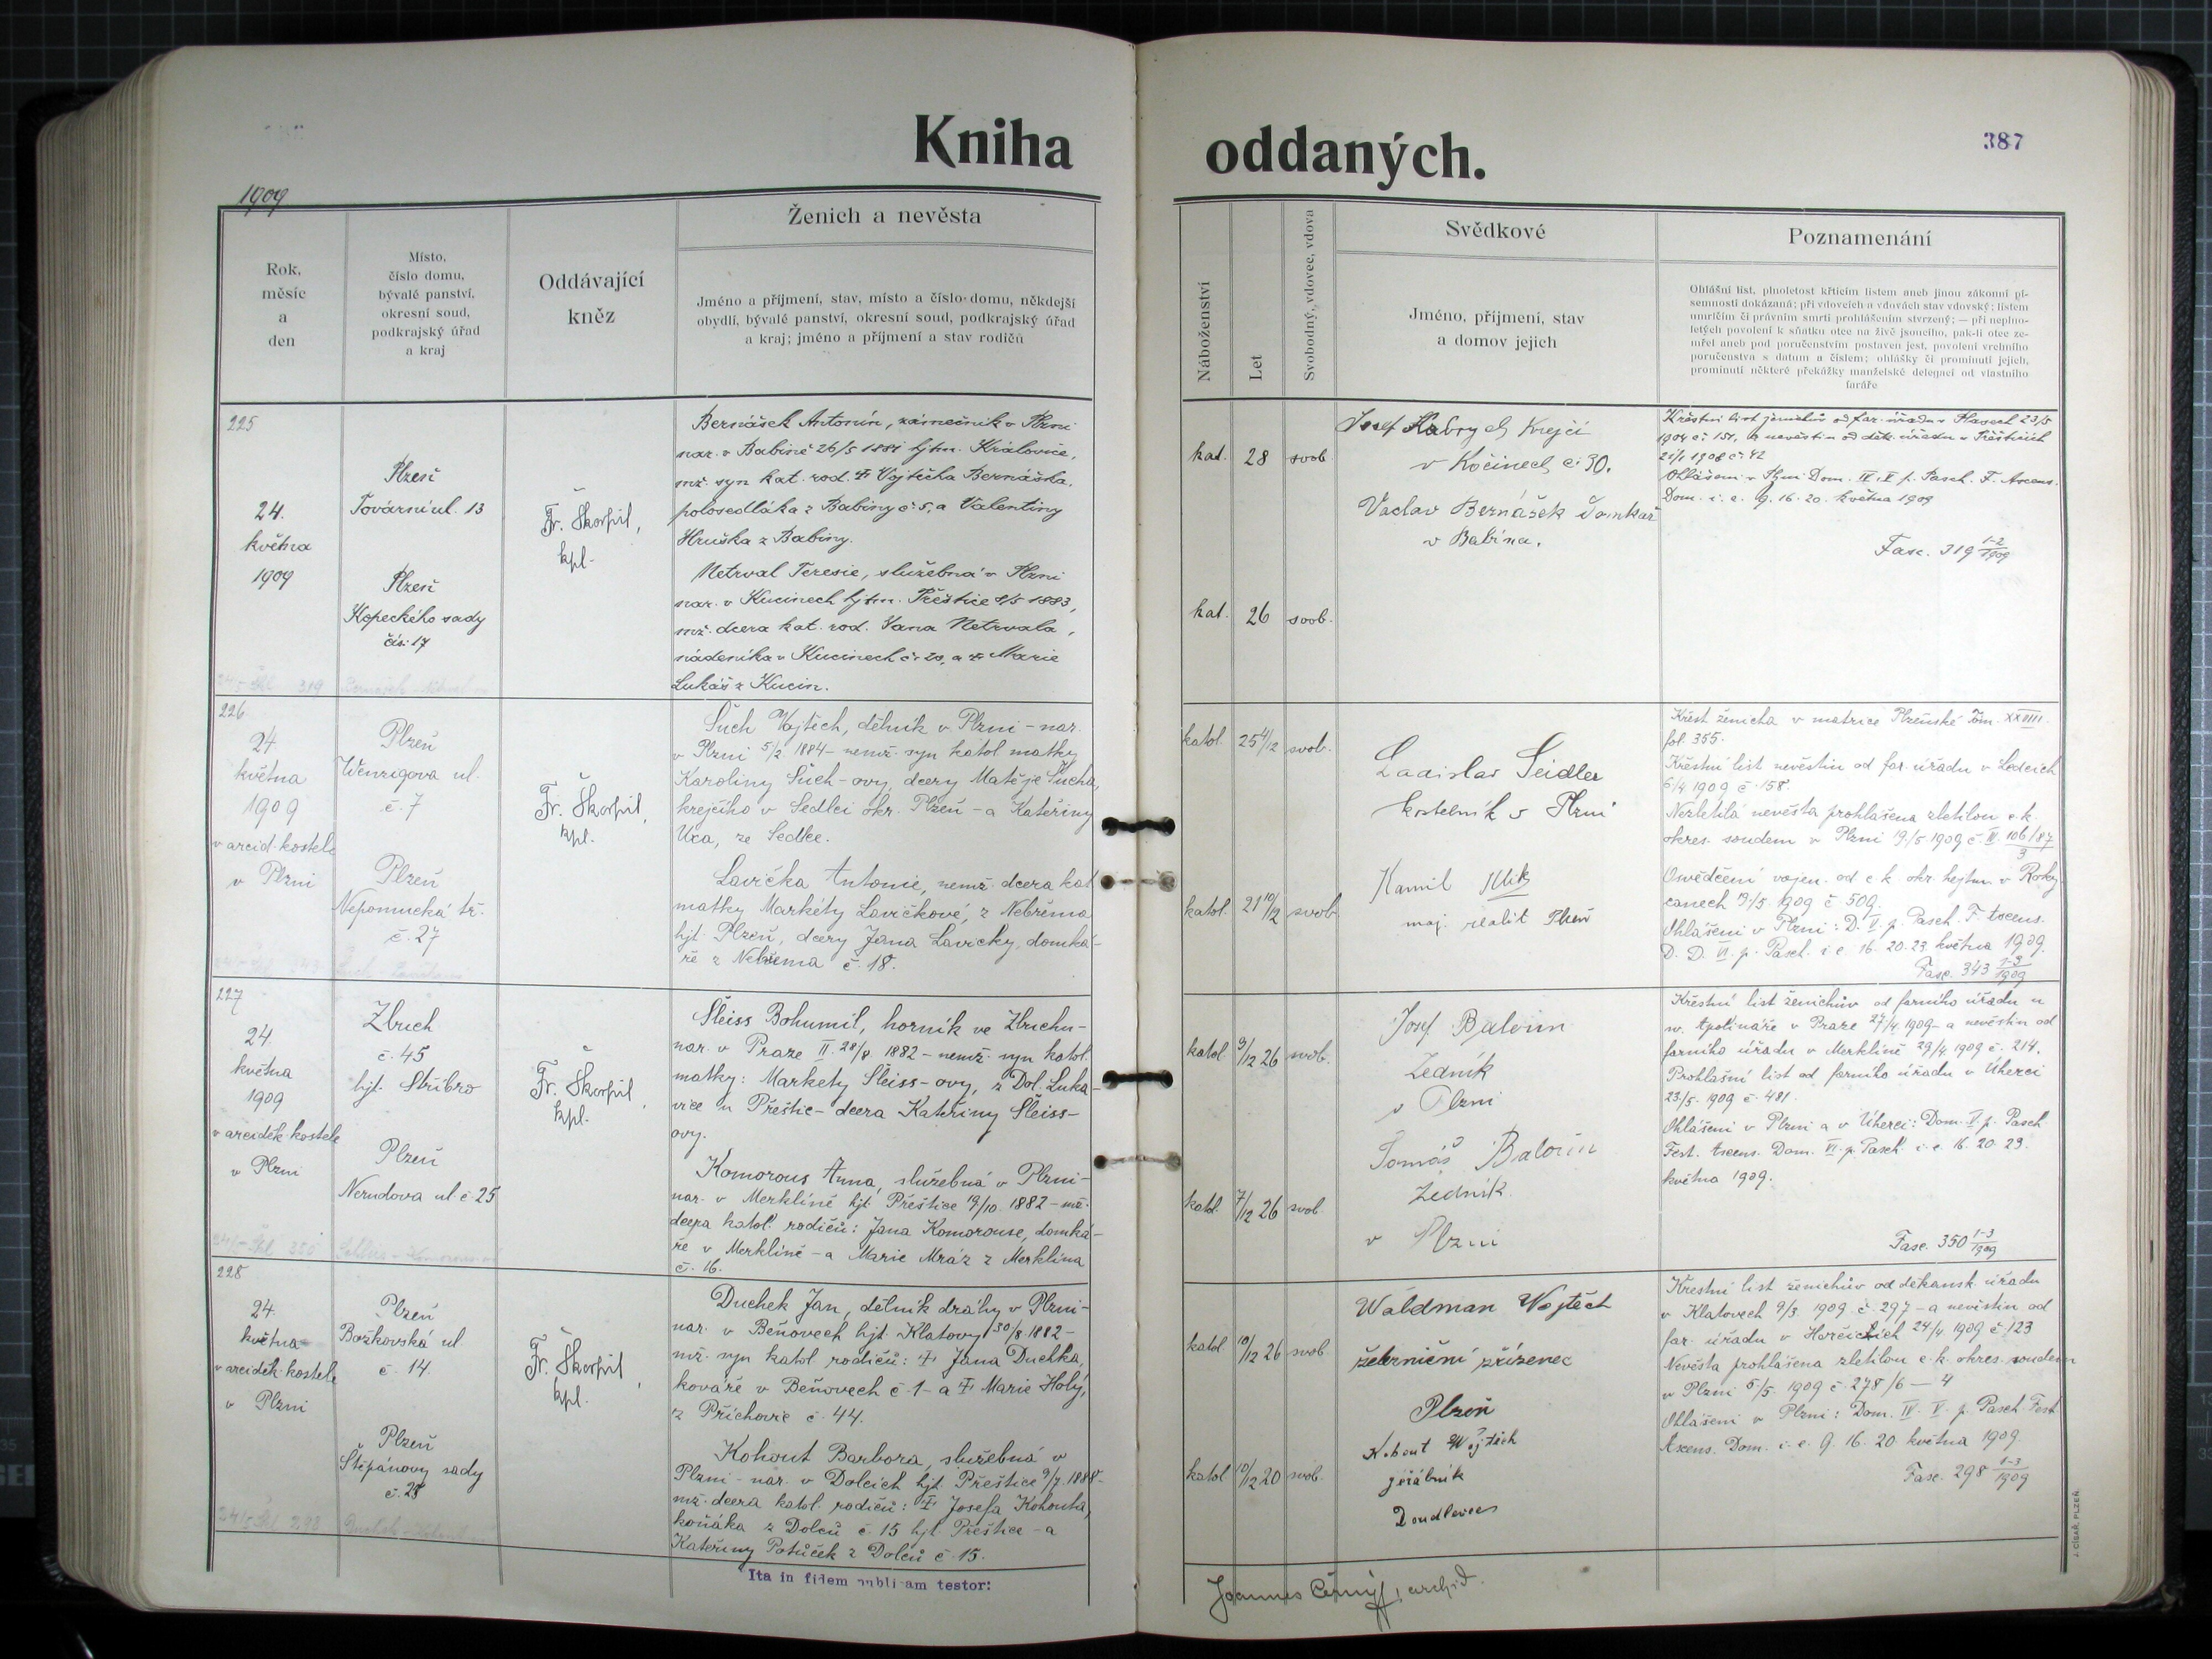 Kniha oddaných.
387
1909
Rok,
měsíc
a
den
Místo,
číslo domu,
bývalé panství,
okresní soud,
podkrajský úřad
a kraj
Oddávající
kněz
Ženich a nevěsta
Jméno a příjmení, stav, místo a číslo domu, někdejší
obydlí, bývalé panství, okresní soud, podkrajský úřad
a kraj; jméno a příjmení a stav rodičů
Náboženství
Let
Svobodný, vdovec, vdova
Svědkové
Jméno, příjmení, stav
a domov jejich
Poznamenání
Ohlášní list, plnoletost křticím listem aneb jinou zákonní pí-
semností dokázaná; při vdovcích a vdovách stav vdovský; listem
umrlčím či právním smrti prohlášením stvrzený; — při neplno-
letých povolení k sňatku otce na živě jsoucího, pak-li otec ze-
mřel aneb pod poručenstvím postaven jest, povolení vrchního
poručenstva s datum a číslem; ohlášky či prominutí jejich,
prominutí některé překážky manželské delegací od vlastního
faráře
225
24.
května
1909
Plzeň
Tovární ul. 13
Plzeň
Kopeckého sady
čís. 17
Fr. Škorpil,
kpl.
Bernášek Antonín, zámečník v Plzni
nar. v Babině 26/5 1881 hjtm. Kralovice,
mž. syn kat. rod. † Vojtěcha Bernáška,
polosedláka z Babiny č. 5, a Valentiny
Hruška z Babiny.
Netrval Teresie, služebná v Plzni
nar. v Kucinech hjtm. Přeštice 8/5 1883,
mž. dcera kat. rod. Jana Netrvala,
nádeníka v Kucinech č. 20, a † Marie
Lukáš z Kucin.
kat. 28 svob.
kat. 26 svob.
Josef Habrych Krejčí
v Kočinech č. 30.
Vaclav Bernášek Domkař
v Babina.
Křestní list ženichův od far. úřadu v Plasech 23/5
1904 č. 151, a nevěstin od děk. úřadu v Přešticích
21/1 1908 č. 42
Ohlášeni v Plzni Dom. IV. V p. Pasch. F. Ascens.
Dom. i. e. 9. 16. 20. května 1909
Fasc. 319 1-2/1909
226.
24
května
1909
v arcid. kostele
v Plzni
Plzeň
Wenzigova ul.
č. 7
Plzeň
Nepomucká tř.
č. 27
Fr. Škorpil,
kpl.
Šuch Vojtěch, dělník v Plzni – nar.
v Plzni 5/2 1884 – nemž. syn katol. matky
Karoliny Šuch-ovy, dcery Matěje Šucha,
krejčího v Sedlci okr. Plzeň – a Kateřiny
Uxa, ze Sedlce.
Lavička Antonie, nemž. dcera kat.
matky Markéty Lavičkové, z Nebřema
hjt. Plzeň, dcery Jana Lavičky, domká-
ře z Nebřema č. 18.
katol. 25 4/12 svob.
katol. 21 10/12 svob.
Ladislav Seidler
kostelník v Plzni
Kamil
maj. realit Plzeň
Křest ženicha v matrice Plzeňské Tom. XXVIII.
fol. 355.
Křestní list nevěstin od far. úřadu v Ledcích
6/4 1909 č. 158.
Nezletilá nevěsta prohlášena zletilou c. k.
okres. soudem v Plzni 19./5. 1909 č. IV. 106/87
3
Osvědčení vojen. od c. k. okr. hejtm. v Roky-
canech 3/5. 1909 č. 509.
Ohlášeni v Plzni: D. V. p. Pasch. F. Ascens.
D. D. VI. p. Pasch. i. e. 16. 20. 23. května 1909.
Fasc. 343 1-3/1909
227
24.
května
1909
v arciděk. kostele
v Plzni
Zbuch
č. 45
hjt. Stříbro
Plzeň
Nerudova ul. č. 25
Fr. Škorpil,
kpl.
Šleiss Bohumil, horník ve Zbuchu –
nar. v Praze II. 28/8. 1882 – nemž. syn katol.
matky: Markety Šleiss-ovy, z Dol. Luka-
vice u Přeštic – dcera Kateřiny Šleiss-
ovy.
Komorous Anna, služebná v Plzni –
nar. v Merklíně hjt. Přeštice 19/10. 1882 – mž.
dcera katol. rodičů: Jana Komorouse, domká-
ře v Merklíně – a Marie Mráz z Merklína
č. 16.
katol. 9/12 26 svob.
katol. 7/12 26 svob.
Josef Balvín
Zedník
v Plzni
Tomáš Balvín
Zedník.
v Plzni
Křestní list ženichův od farního úřadu u
sv. Apolináře v Praze 27/4. 1909 – a nevěstin od
farního úřadu v Merklíně 29/4 1909 č. 214.
Prohlašní list od farního úřadu v Úherci
23/5. 1909 č. 481.
Ohlášeni v Plzni a v Úherci: Dom. V. p. Pasch.
Fest. Ascens. Dom. VI. p. Pasch. i. e. 16. 20. 23.
května 1909.
Fasc. 350 1-3/1909
228
24.
května
v arciděk. kostele
v Plzni
Plzeň
Božkovská ul
č. 14.
Plzeň
Štěpánovy sady
č. 28
Fr. Škorpil,
kpl.
Duchek Jan, dělník dráhy v Plzni –
nar. v Beňovech hjt. Klatovy 30/8. 1882 –
mž. syn katol. rodičů: † Jana Duchka,
kováře v Beňovech č. 1 – a † Marie Holý,
z Příchovic č. 44.
Kohout Barbora, služebná v
Plzni – nar. v Dolcích hjt. Přeštice 9/7. 1888 –
mž. dcera katol. rodičů: † Josefa Kohouta,
koňáka z Dolců č. 15 hjt. Přeštice – a
Kateřiny Potůček z Dolců č. 15.
katol. 10/12 26 svob.
katol. 10/12 20 svob.
Waldman Wojtěch
železniční zřízenec
Plzeň
Kohout Wojtěch
jeřábník
Doudlevce
Křestní list ženichův od děkansk. úřadu
v Klatovech 9/3. 1909. č. 297 – a nevěstin od
far. úřadu v Horčicích 24/4 1909 č. 123
Nevěsta prohlášena zletilou c. k. okres. soudem
v Plzni 5/5. 1909 č. 278/6 — 4
Ohlášeni v Plzni: Dom. IV. V. p. Pasch. Fest
Ascens. Dom. i. e. 9. 16. 20. května 1909.
Fasc. 298 1-3/1909
Ita in fidem publicam testor:
Joannes Černý, archid.
J. CÍSAŘ, PLZEŇ.